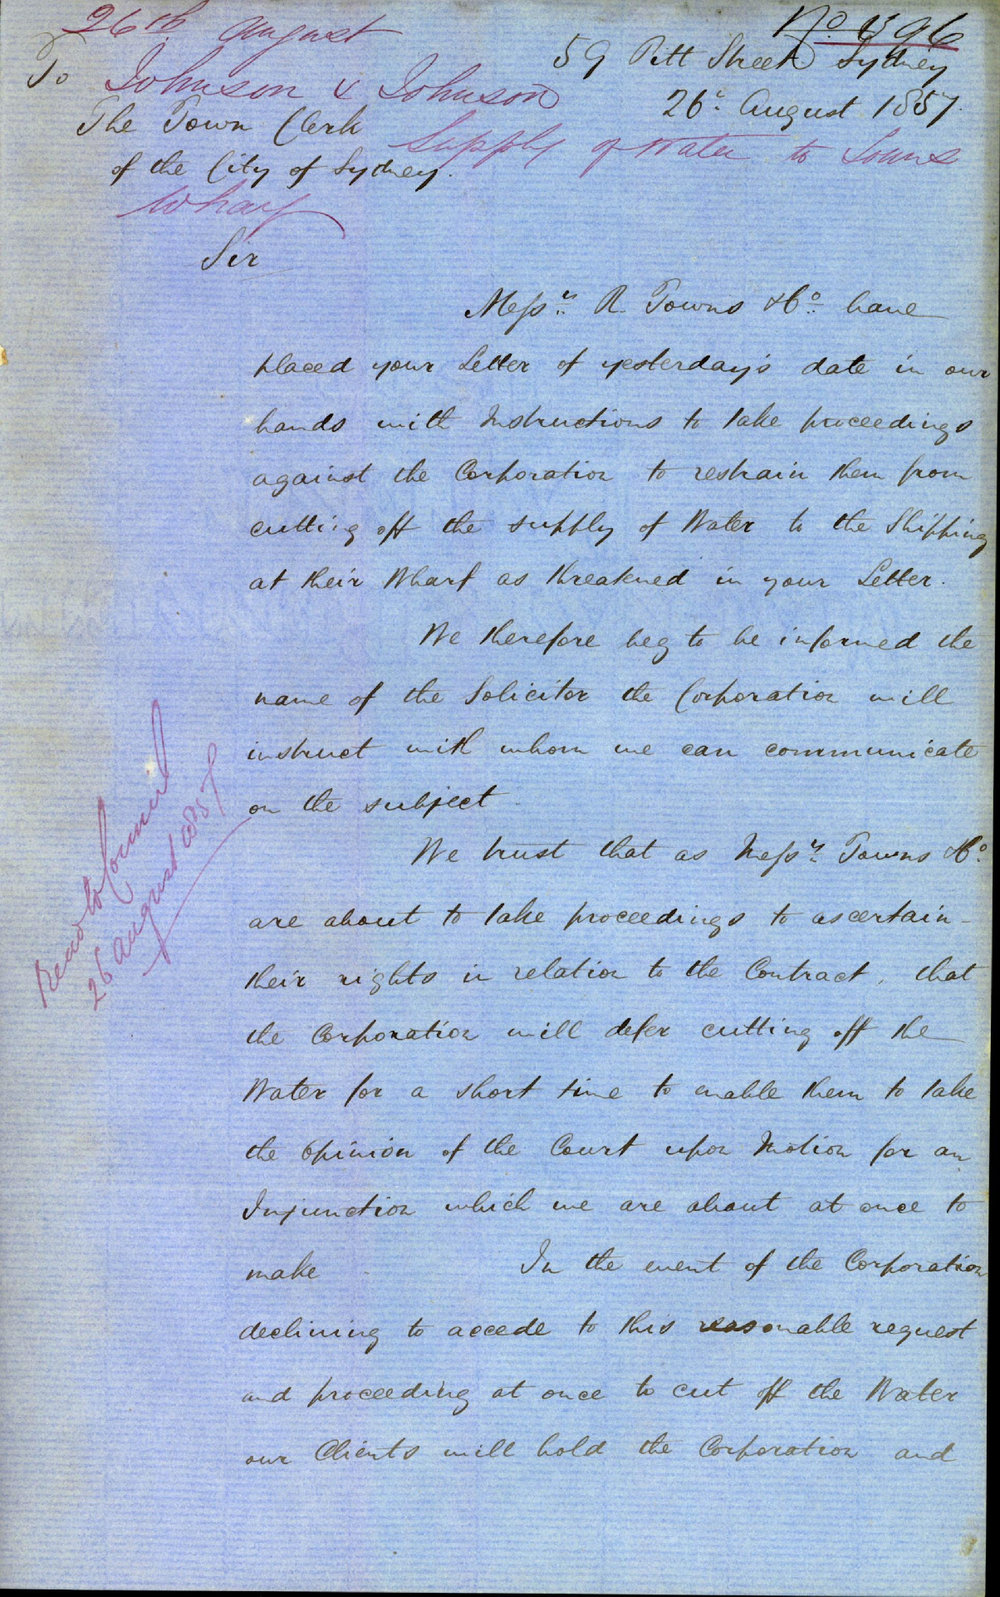 26th August
No 896
59 Pitt Street Sydney
To
Johnson & Johnson
26th August 1857.
The Town Clerk
Supply of Water to Towns
of the City of Sydney.
Wharf
Sir
Messrs. R. Towns & Co. have
placed your Letter of yesterday's date in our
hands with Instructions to take proceedings
against the Corporation to restrain them from
cutting off the supply of Water to the Shipping
at their Wharf as threatened in your Letter.
We therefore beg to be informed the
name of the Solicitor the Corporation will
instruct with whom we can communicate
on the subject.
We trust that as Messrs. Towns & Co.
are about to take proceedings to ascertain
their rights in relation to the Contract, that
the Corporation will defer cutting off the
Water for a short time to enable them to take
the opinion of the Court upon Motion for an
Injunction which we are about at once to
make In the event of the Corporation
declining to accede to this reasonable request
and proceeding at once to cut off the Water
our Clients will hold the Corporation and
Read to Council
26 August 1857